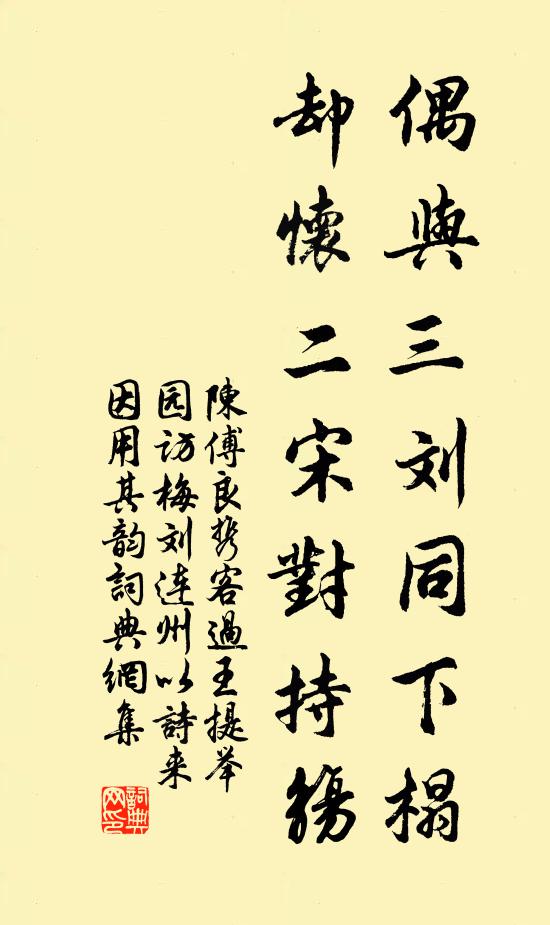 偶與三刘同下榻
却懷二宋對持觴
陳傅良携客過王提举
园访梅刘连州以詩来
因用其韵詞典網集
詞典
网印